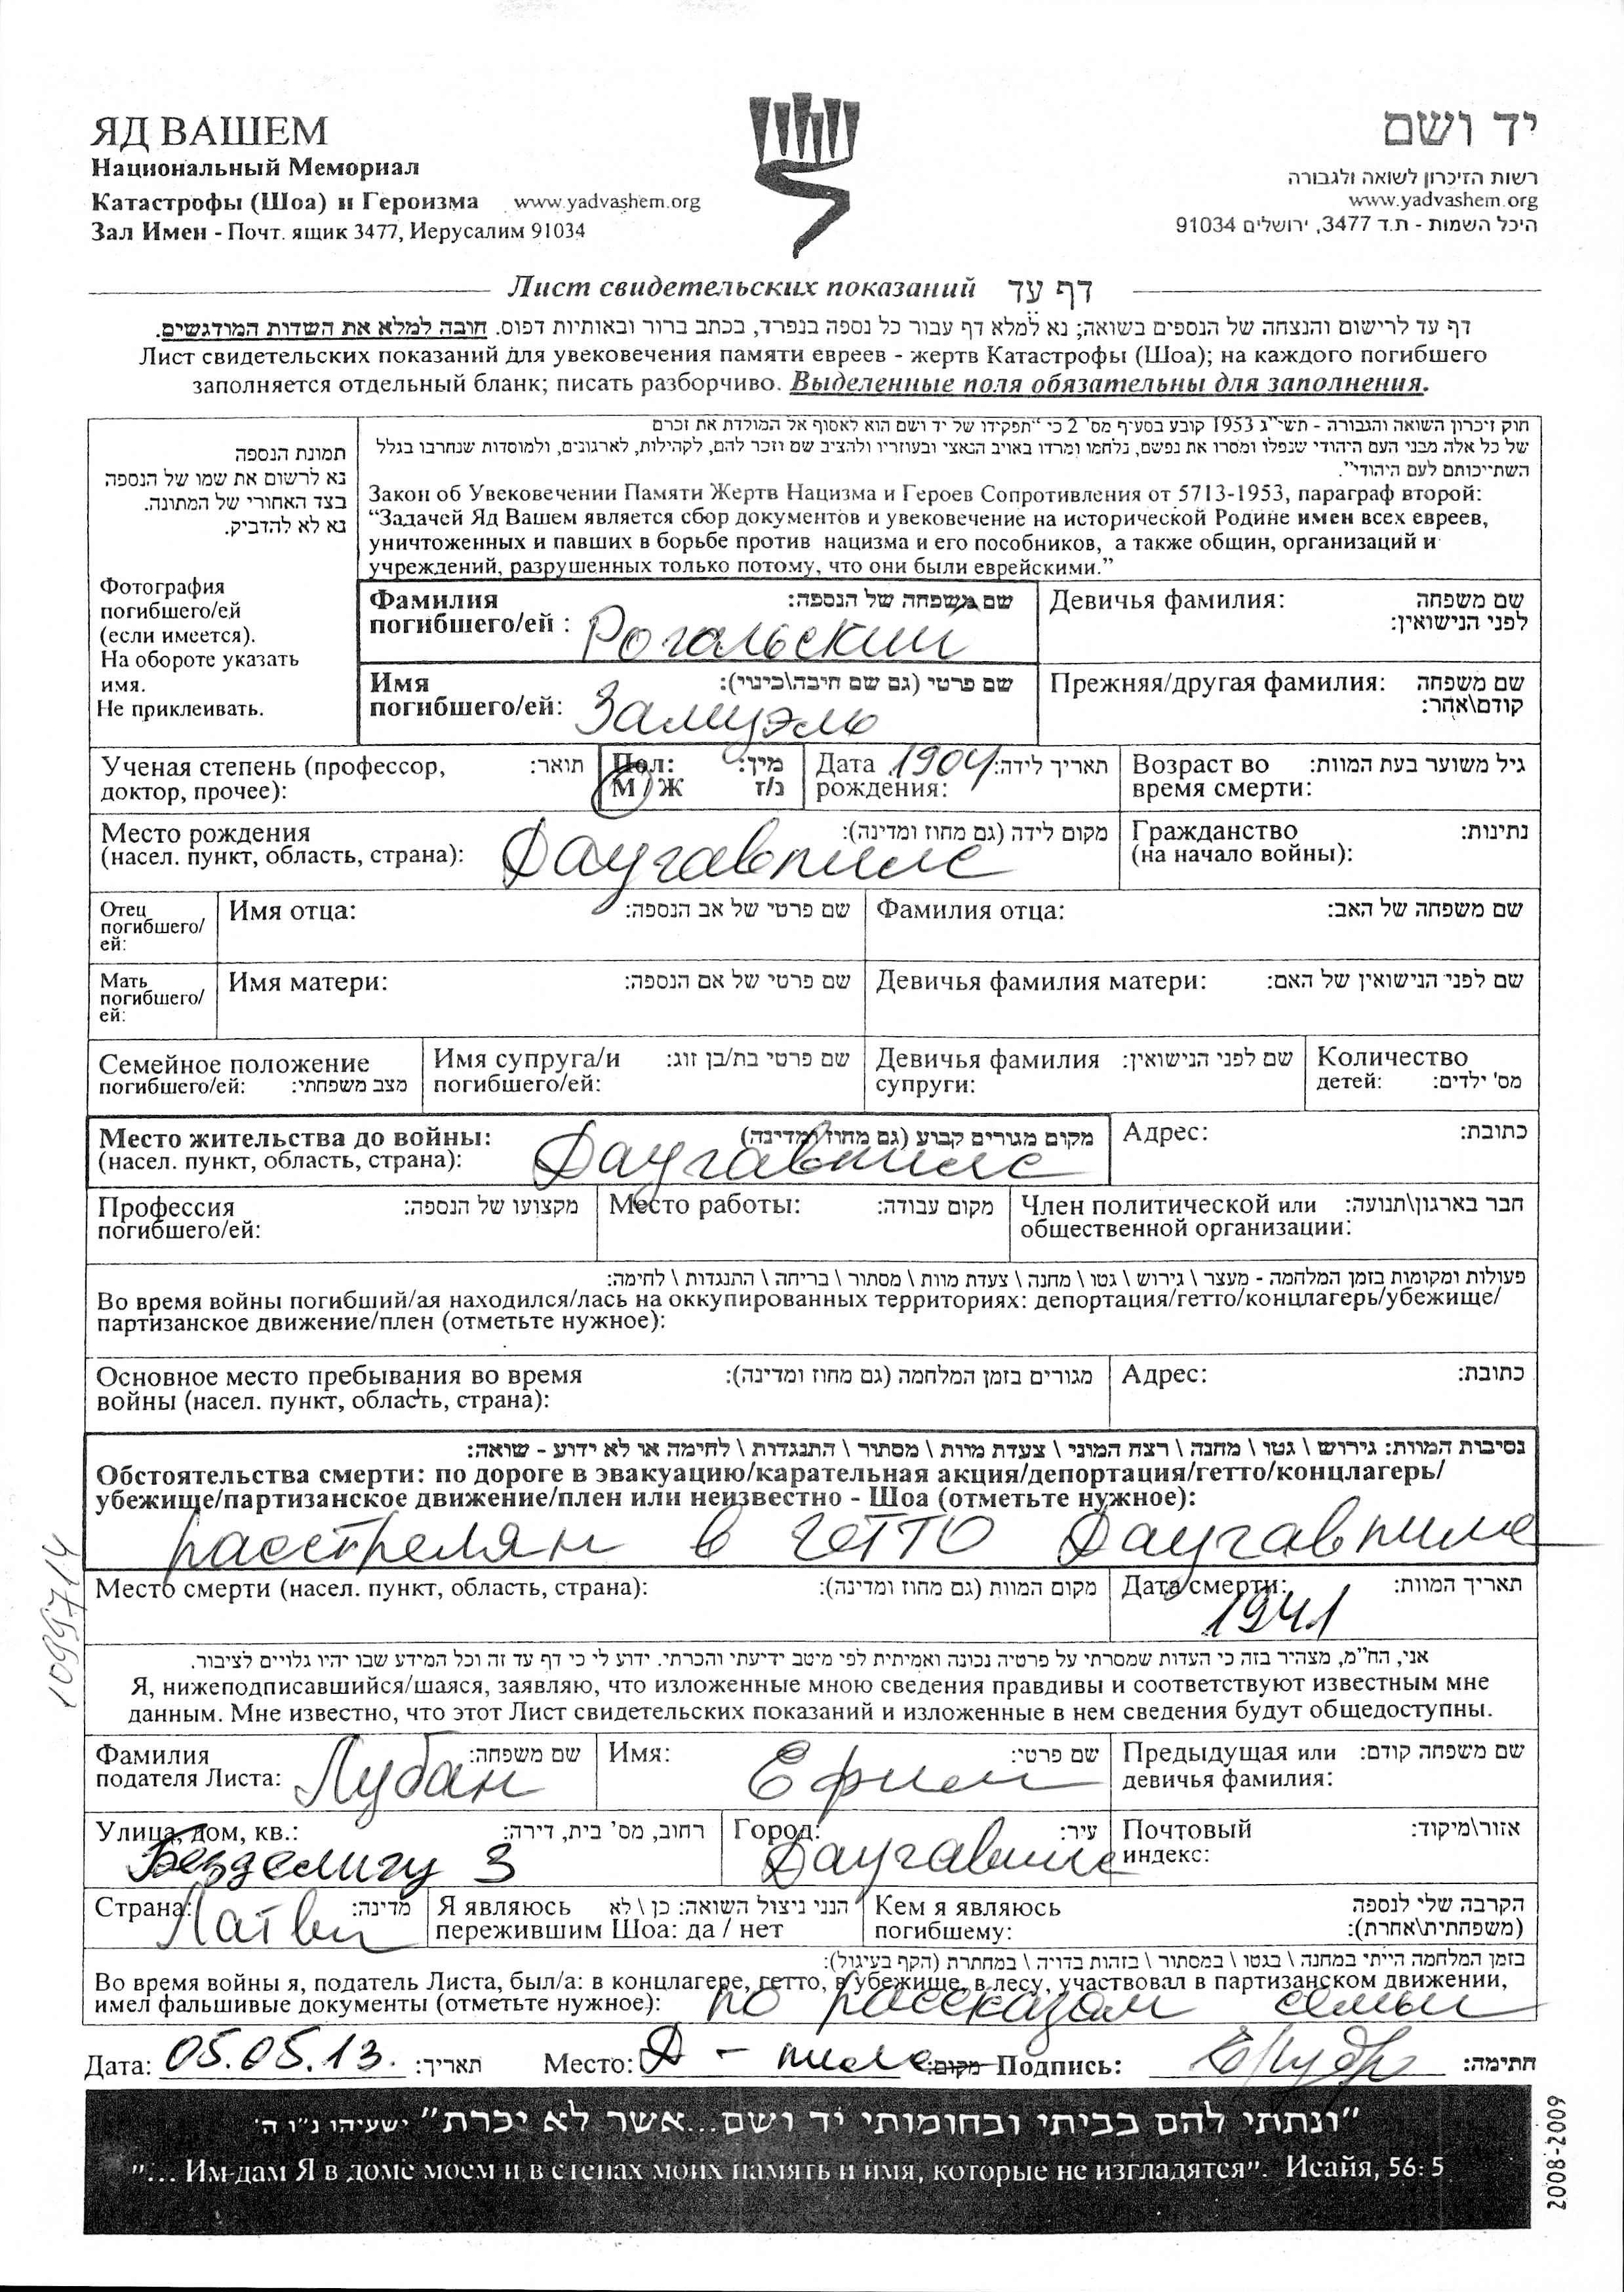 ЯД ВАШЕМ
Национальный Мемориал
Катастрофы (Шоа) и Героизма www.yadvashem.org
Зал Имен - Почт. ящик 3477, Иерусалим 91034
יד ושם
רשות הזיכרון לשואה ולגבורה
www.yadvashem.org
היכל השמות - ת.ד 3477, ירושלים 91034
Лист свидетельских показаний דף עד
דף עד לרישום והנצחה של הנספים בשואה; נא למלא דף עבור כל נספה בנפרד, בכתב ברור ובאותיות דפוס. חובה למלא את השדות המודגשים.
Лист свидетельских показаний для увековечения памяти евреев - жертв Катастрофы (Шоа); на каждого погибшего
заполняется отдельный бланк; писать разборчиво. Выделенные поля обязательны для заполнения.
תמונת הנספה
נא לרשום את שמו של הנספה
בצד האחורי של המתונה.
נא לא להדביק.
Фотография
погибшего/ей
(если имеется).
На обороте указать
имя.
Не приклеивать.
חוק זיכרון השואה והגבורה - תשי"ג 1953 קובע בסעיף מס' 2 כי "תפקידו של יד ושם הוא לאסוף אל המולדת את זכרם
של כל אלה מבני העם היהודי שנפלו ומסרו את נפשם, נלחמו ומרדו באויב הנאצי ובעוזריו ולהציב שם וזכר להם, לקהילות, לארגונים, ולמוסדות שנחרבו בגלל
השתייכותם לעם היהודי".
Закон об Увековечении Памяти Жертв Нацизма и Героев Сопротивления от 5713-1953, параграф второй:
“Задачей Яд Вашем является сбор документов и увековечение на исторической Родине имен всех евреев,
уничтоженных и павших в борьбе против нацизма и его пособников, а также общин, организаций и
учреждений, разрушенных только потому, что они были еврейскими.”
Фамилия שם משפחה של הנספה:
погибшего/ей : Рогальский
Девичья фамилия: שם משפחה
לפני הנישואין:
Имя שם פרטי (גם שם חיבה\כינוי):
погибшего/ей: Замуэль
Прежняя/другая фамилия: שם משפחה
קודם\אחר:
Ученая степень (профессор, תואר:
доктор, прочее):
Пол: מין:
М / Ж ז/נ
Дата 1904 תאריך לידה:
рождения:
Возраст во גיל משוער בעת המוות:
время смерти:
Место рождения מקום לידה (גם מחוז ומדינה):
(насел. пункт, область, страна): Даугавпилс
Гражданство נתינות:
(на начало войны):
Отец
погибшего/
ей:
Имя отца: שם פרטי של אב הנספה:
Фамилия отца: שם משפחה של האב:
Мать
погибшего/
ей:
Имя матери: שם פרטי של אם הנספה:
Девичья фамилия матери: שם לפני הנישואין של האם:
Семейное положение
погибшего/ей: מצב משפחתי:
Имя супруга/и שם פרטי בת/בן זוג:
погибшего/ей:
Девичья фамилия שם לפני הנישואין:
супруги:
Количество
детей: מס' ילדים:
Место жительства до войны: מקום מגורים קבוע (גם מחוז ומדינה)
(насел. пункт, область, страна): Даугавпилс
Адрес: כתובת:
Профессия מקצועו של הנספה:
погибшего/ей:
Место работы: מקום עבודה:
Член политической или חבר בארגון\תנועה:
общественной организации:
פעולות ומקומות בזמן המלחמה - מעצר \ גירוש \ גטו \ מחנה \ צעדת מוות \ מסתור \ בריחה \ התנגדות \ לחימה:
Во время войны погибший/ая находился/лась на оккупированных территориях: депортация/гетто/концлагерь/убежище/
партизанское движение/плен (отметьте нужное):
Основное место пребывания во время מגורים בזמן המלחמה (גם מחוז ומדינה):
войны (насел. пункт, область, страна):
Адрес: כתובת:
נסיבות המוות: גירוש \ גטו \ מחנה \ רצח המוני \ צעדת מוות \ מסתור \ התנגדות \ לחימה או לא ידוע - שואה:
Обстоятельства смерти: по дороге в эвакуацию/карательная акция/депортация/гетто/концлагерь/
убежище/партизанское движение/плен или неизвестно - Шоа (отметьте нужное):
расстрелян в гетто Даугавпилс
Место смерти (насел. пункт, область, страна): מקום המוות (גם מחוז ומדינה):
Дата смерти: תאריך המוות:
1941
אני, הח"מ, מצהיר בזה כי העדות שמסרתי על פרטיה נכונה ואמיתית לפי מיטב ידיעתי והכרתי. ידוע לי כי דף עד זה וכל המידע שבו יהיו גלויים לציבור.
Я, нижеподписавшийся/шаяся, заявляю, что изложенные мною сведения правдивы и соответствуют известным мне
данным. Мне известно, что этот Лист свидетельских показаний и изложенные в нем сведения будут общедоступны.
Фамилия שם משפחה:
подателя Листа: Лубан
Имя: שם פרטי:
Ефим
Предыдущая или שם משפחה קודם:
девичья фамилия:
Улица, дом, кв.: רחוב, מס' בית, דירה:
3
Город: עיר:
Даугавпилс
Почтовый אזור\מיקוד:
индекс:
Страна: מדינה:
Латвия
Я являюсь הנני ניצול השואה: כן \ לא
пережившим Шоа: да / нет
Кем я являюсь הקרבה שלי לנספה
погибшему: (משפחתית\אחרת):
בזמן המלחמה הייתי במחנה \ בגטו \ במסתור \ בזהות בדויה \ במחתרת (הקף בעיגול):
Во время войны я, податель Листа, был/а: в концлагере, гетто, в убежище, в лесу, участвовал в партизанском движении,
имел фальшивые документы (отметьте нужное): по рассказам семьи
Дата: 05.05.13. תאריך: Место: Д - пилс מקום: Подпись: חתימה:
"ונתתי להם בביתי ובחומותי יד ושם...אשר לא יכרת" ישעיהו נ"ו ה'
"... Им дам Я в доме моем и в стенах моих память и имя, которые не изгладятся". Исайя, 56: 5
2008-2009